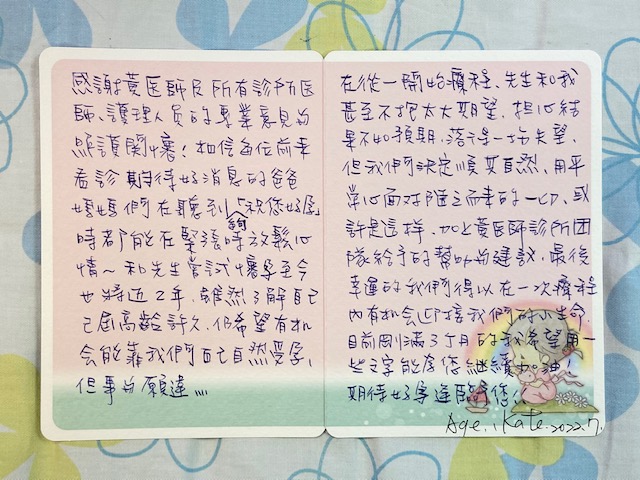 感謝黃医師及所有診所医
師、護理人員的專業意見与
照護関懷!相信每位前來
看診期待好消息的爸爸
媽媽們在聽到「祝您好孕」
時都能夠在緊張時放鬆心
情~和先生嘗試懷孕至今
也將近2年,雖然了解自己
已屆高齡許久,但希望有机
会能靠我們自己自然受孕,
但事与願違....
在從一開始療程,先生和我
甚至不抱太大期望,担心結
果不如預期,落得一場失望,
但我們決定順其自然,用平
常心面对隨之而來的一切,或
許是這样,加上黃医師診所团
隊給予的幫助与建議,最後
幸運的我們得以在一次療程
內有机会迎接我們的小生命,
目前剛滿3個月的我希望用一
些文字能為您繼續加油!
期待好孕進臨您!
Age. , Kate. 2022.7.